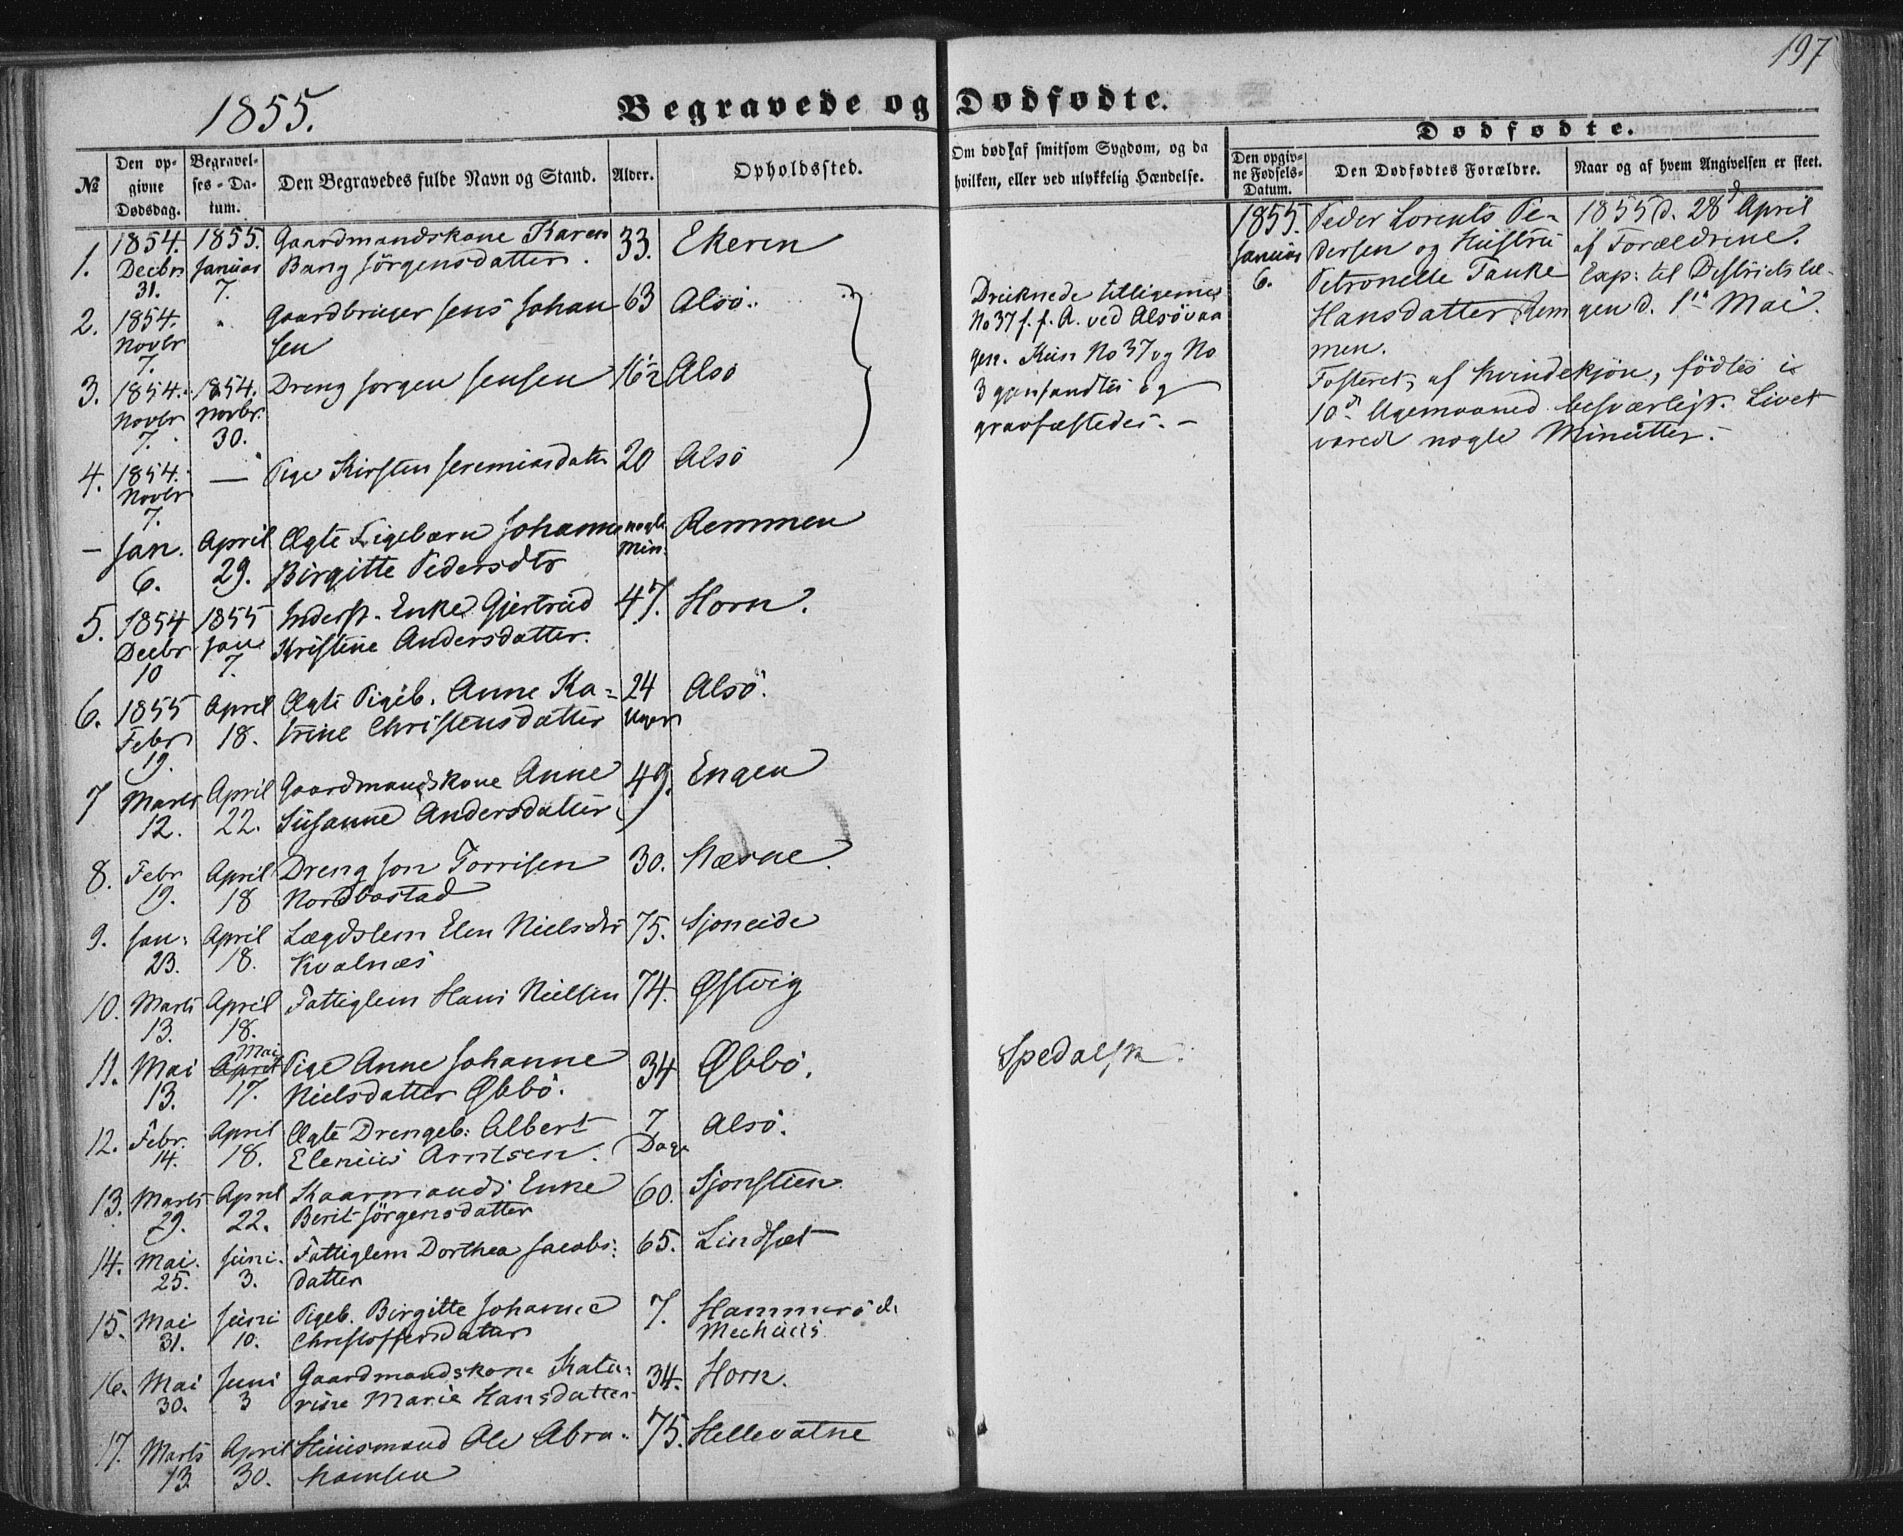 197
1855.
Begravede og Dødfødte.
Dødfødte.
№
Den op-
givne
Dødsdag.
Begravel-
ses-Da-
tum.
Den Begravedes fulde Navn og Stand.
Alder.
Opholdssted.
Om død af smitsom Sygdom, og da
hvilken, eller ved ulykkelig Hændelse.
Den opgiv-
ne Fødsels-
Datum.
Den Dødfødtes Forældre.
Naar og af hvem Angivelsen er skeet.
1. 1854. 1855. Gaardmandskone Karen 33. Ekeren
Decbr Januar Bang Jörgensdatter.
31. 7.
2. 1854. " Gaardbruger Jens Johan 63 Alsö.
Novbr sen
7.
3. 1854. 1854. Dreng Jörgen Jensen 16½ Alsö
Novbr Novbr.
7. 30.
4. 1854. — Pige Kirsten Jeremiasdatter 20 Alsö
Novbr
7.
– Jan. April Ægte Pigebarn Johanne nogle Remmen
6. 29. Birgitte Pedersdtr Min.
5. 1854 1855 Inderst. Enke Gjertrud 47. Horn.
Decbr Jan Kristine Andersdatter.
10 7.
6. 1855 April Ægte Pigeb. Anne Ka- 24 Alsö.
Febr 18. trine Christensdatter Uger
19.
7 Marts April Gaardmandskone Anne 49. Engen
12. 22. Susanne Andersdatter
8. Febr April Dreng Jon Torrisen 30. Næsne.
19. 18 Nordbostad
9. Jan. April Lægdslem Elen Nielsdtr 75. Sjoneide
23. 18. Kvalnæs
10. Marts April Fattiglem Hans Nielsen 74. Østvig
13. 18.
Mai
11. Mai April Pige Anne Johanne 34 Øbbö. Spedalsk.
13. 17. Nielsdatter Øbbö.
12. Febr. April Ægte Drengeb. Albert 7 Alsö.
14. 18. Elenius Arntsen. Dage
13. Marts April Kaarmands Enke 60. Sjonstien
29. 22. Berit Jörgensdatter
14. Mai. Juni. Fattiglem Dorthea Jacobs- 65. Lindset
25. 3. datter
15. Mai Juni Pigeb. Birgitte Johanne 7. Hammerö
31. 10. Christoffersdatter
16. Mai Juni Gaardmandskone Kata- 34. Horn.
30. 3 rine Marie Hansdatter
17. Marts April Huusmand Ole Abra- 75. Hellevatne
13. 30. hamsen
Druknede tilligemed
No 37 f. f. A. ved Alsövaa
gen. Kun No 37 og No
3 gjenfandtes og
gravfæstedes. –
1855. Peder Lorents Pe- 1855 d. 28d April
Januar dersen og Hustru af Forældrene.
6. Petronelle Tanke Exp: til Distriktslæ-
Hansdatter, Rem gen d. 1ste Mai.
men.
Fosteret, af Kvindekjön, födtes i
10d Ugemaaned besværligt. Livet
varede nogle Minutter.